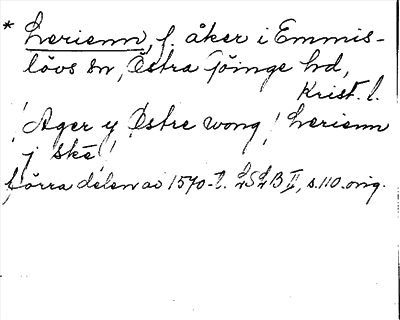 * Lerienn, f. åker i Emmis-
lövs sn, Östra Göinge hd,
Krist. l.
'Ager y Østre wong' Lerienn
j skē'
förra delen av 1570-t. LSLB II, s. 110. orig.